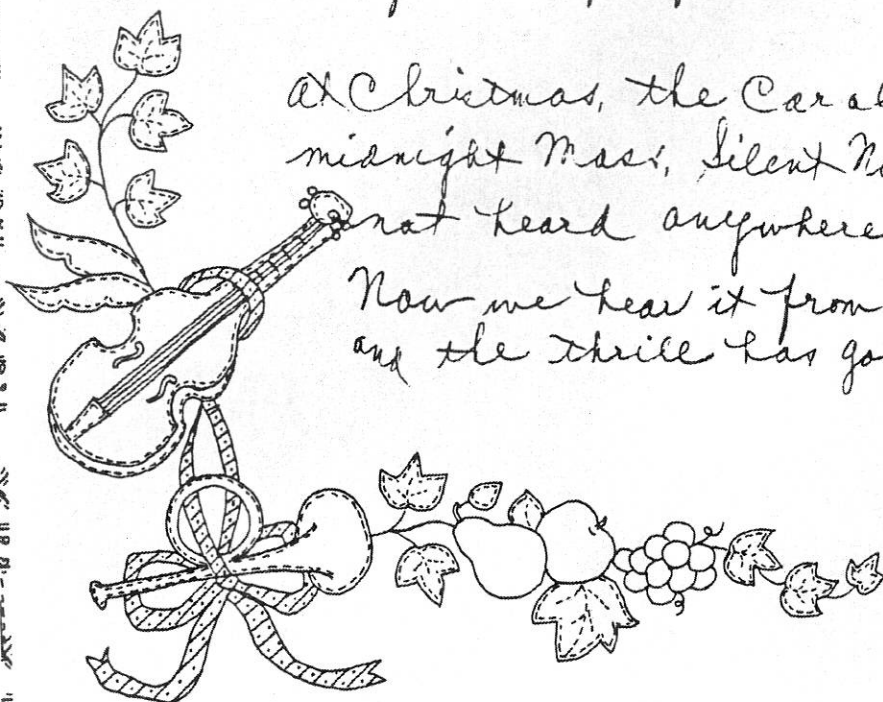 At Christmas, the Carol
midnight Mass, Silent
not heard anywhere
Now we hear it from
and the thrill has